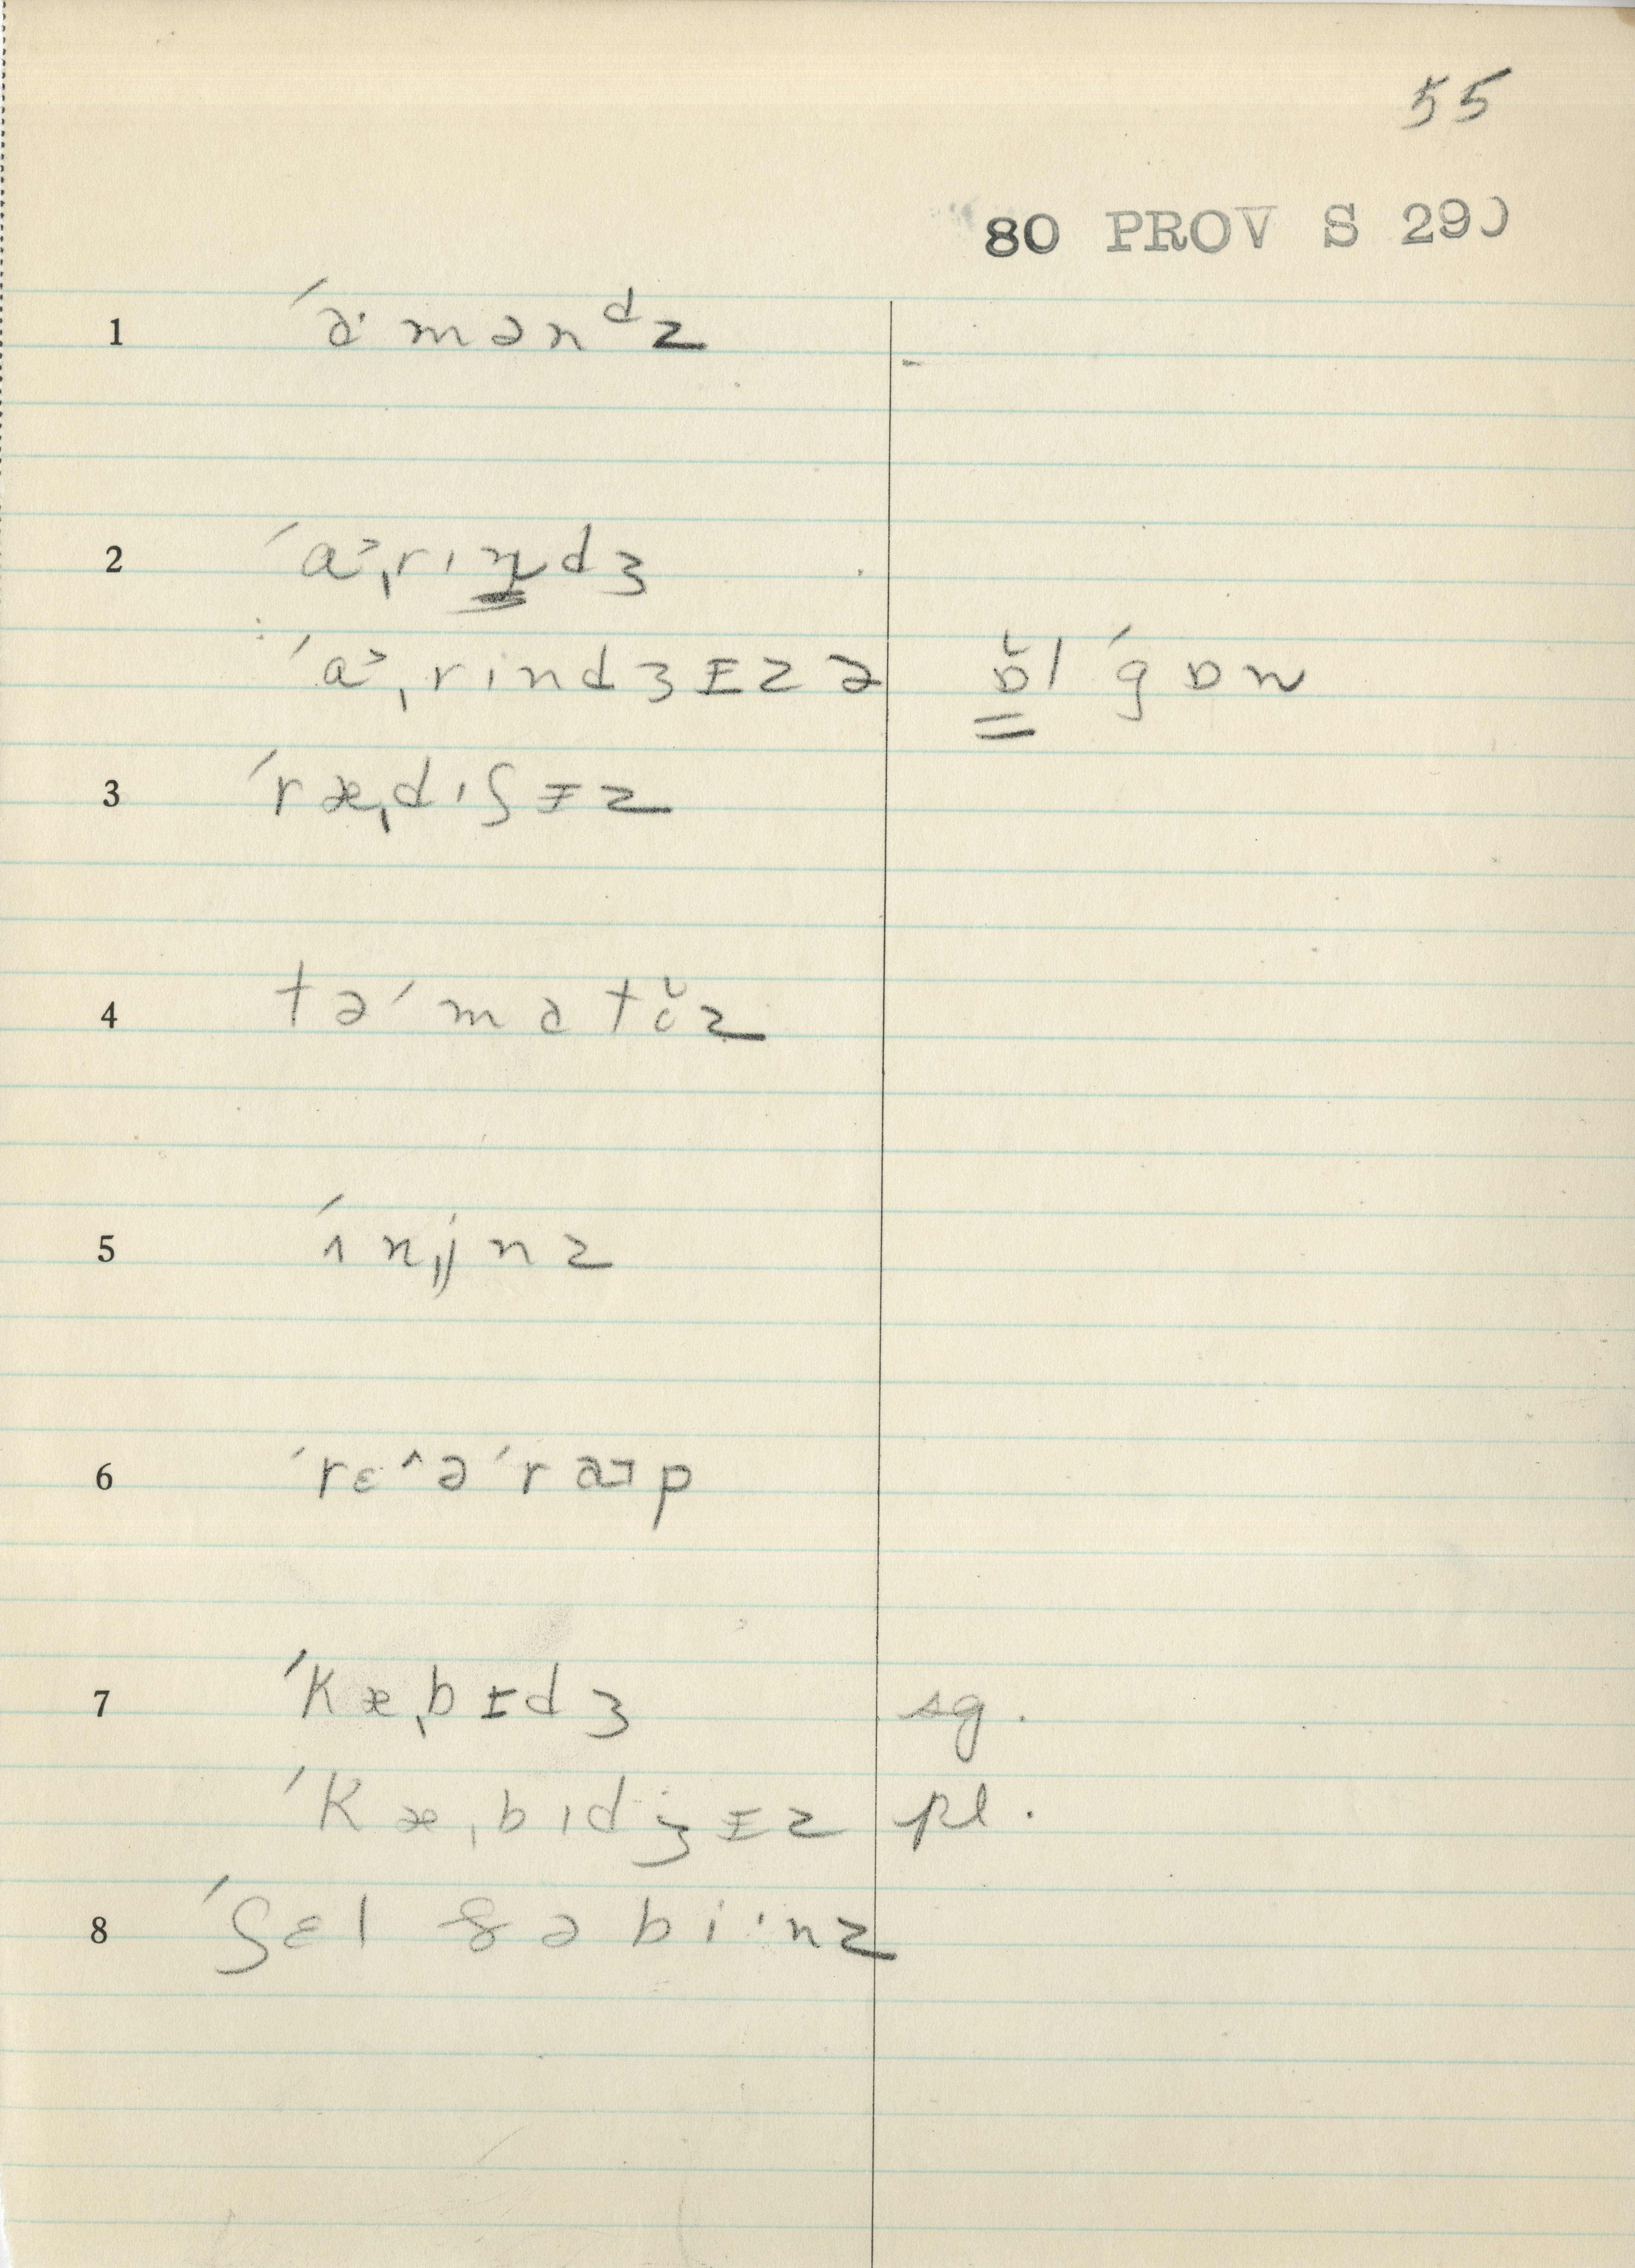 55
80 PROV S 290
1 ˊɑ· m ə n ᵈ z
2 ˊɑ˃ˌr ɪ n d ʒ
ˊɑ˃ˌr i n d ʒ ɪ z ə ɒ̆ l ˊg ɒ n
3 ˊr æˌd ɪ ʃ ɪ z
4 t ə ˊm a t ŏ z
5 ˊʌ nˌj n z
6 ˊr ɛ ^ ə ˊr a p
7 ˊk æˌb ɪ d ʒ sg.
ˊk æˌb ɪ d ʒ ɪ z pl.
8 ˊʃ ɛ l & ə b i · n z